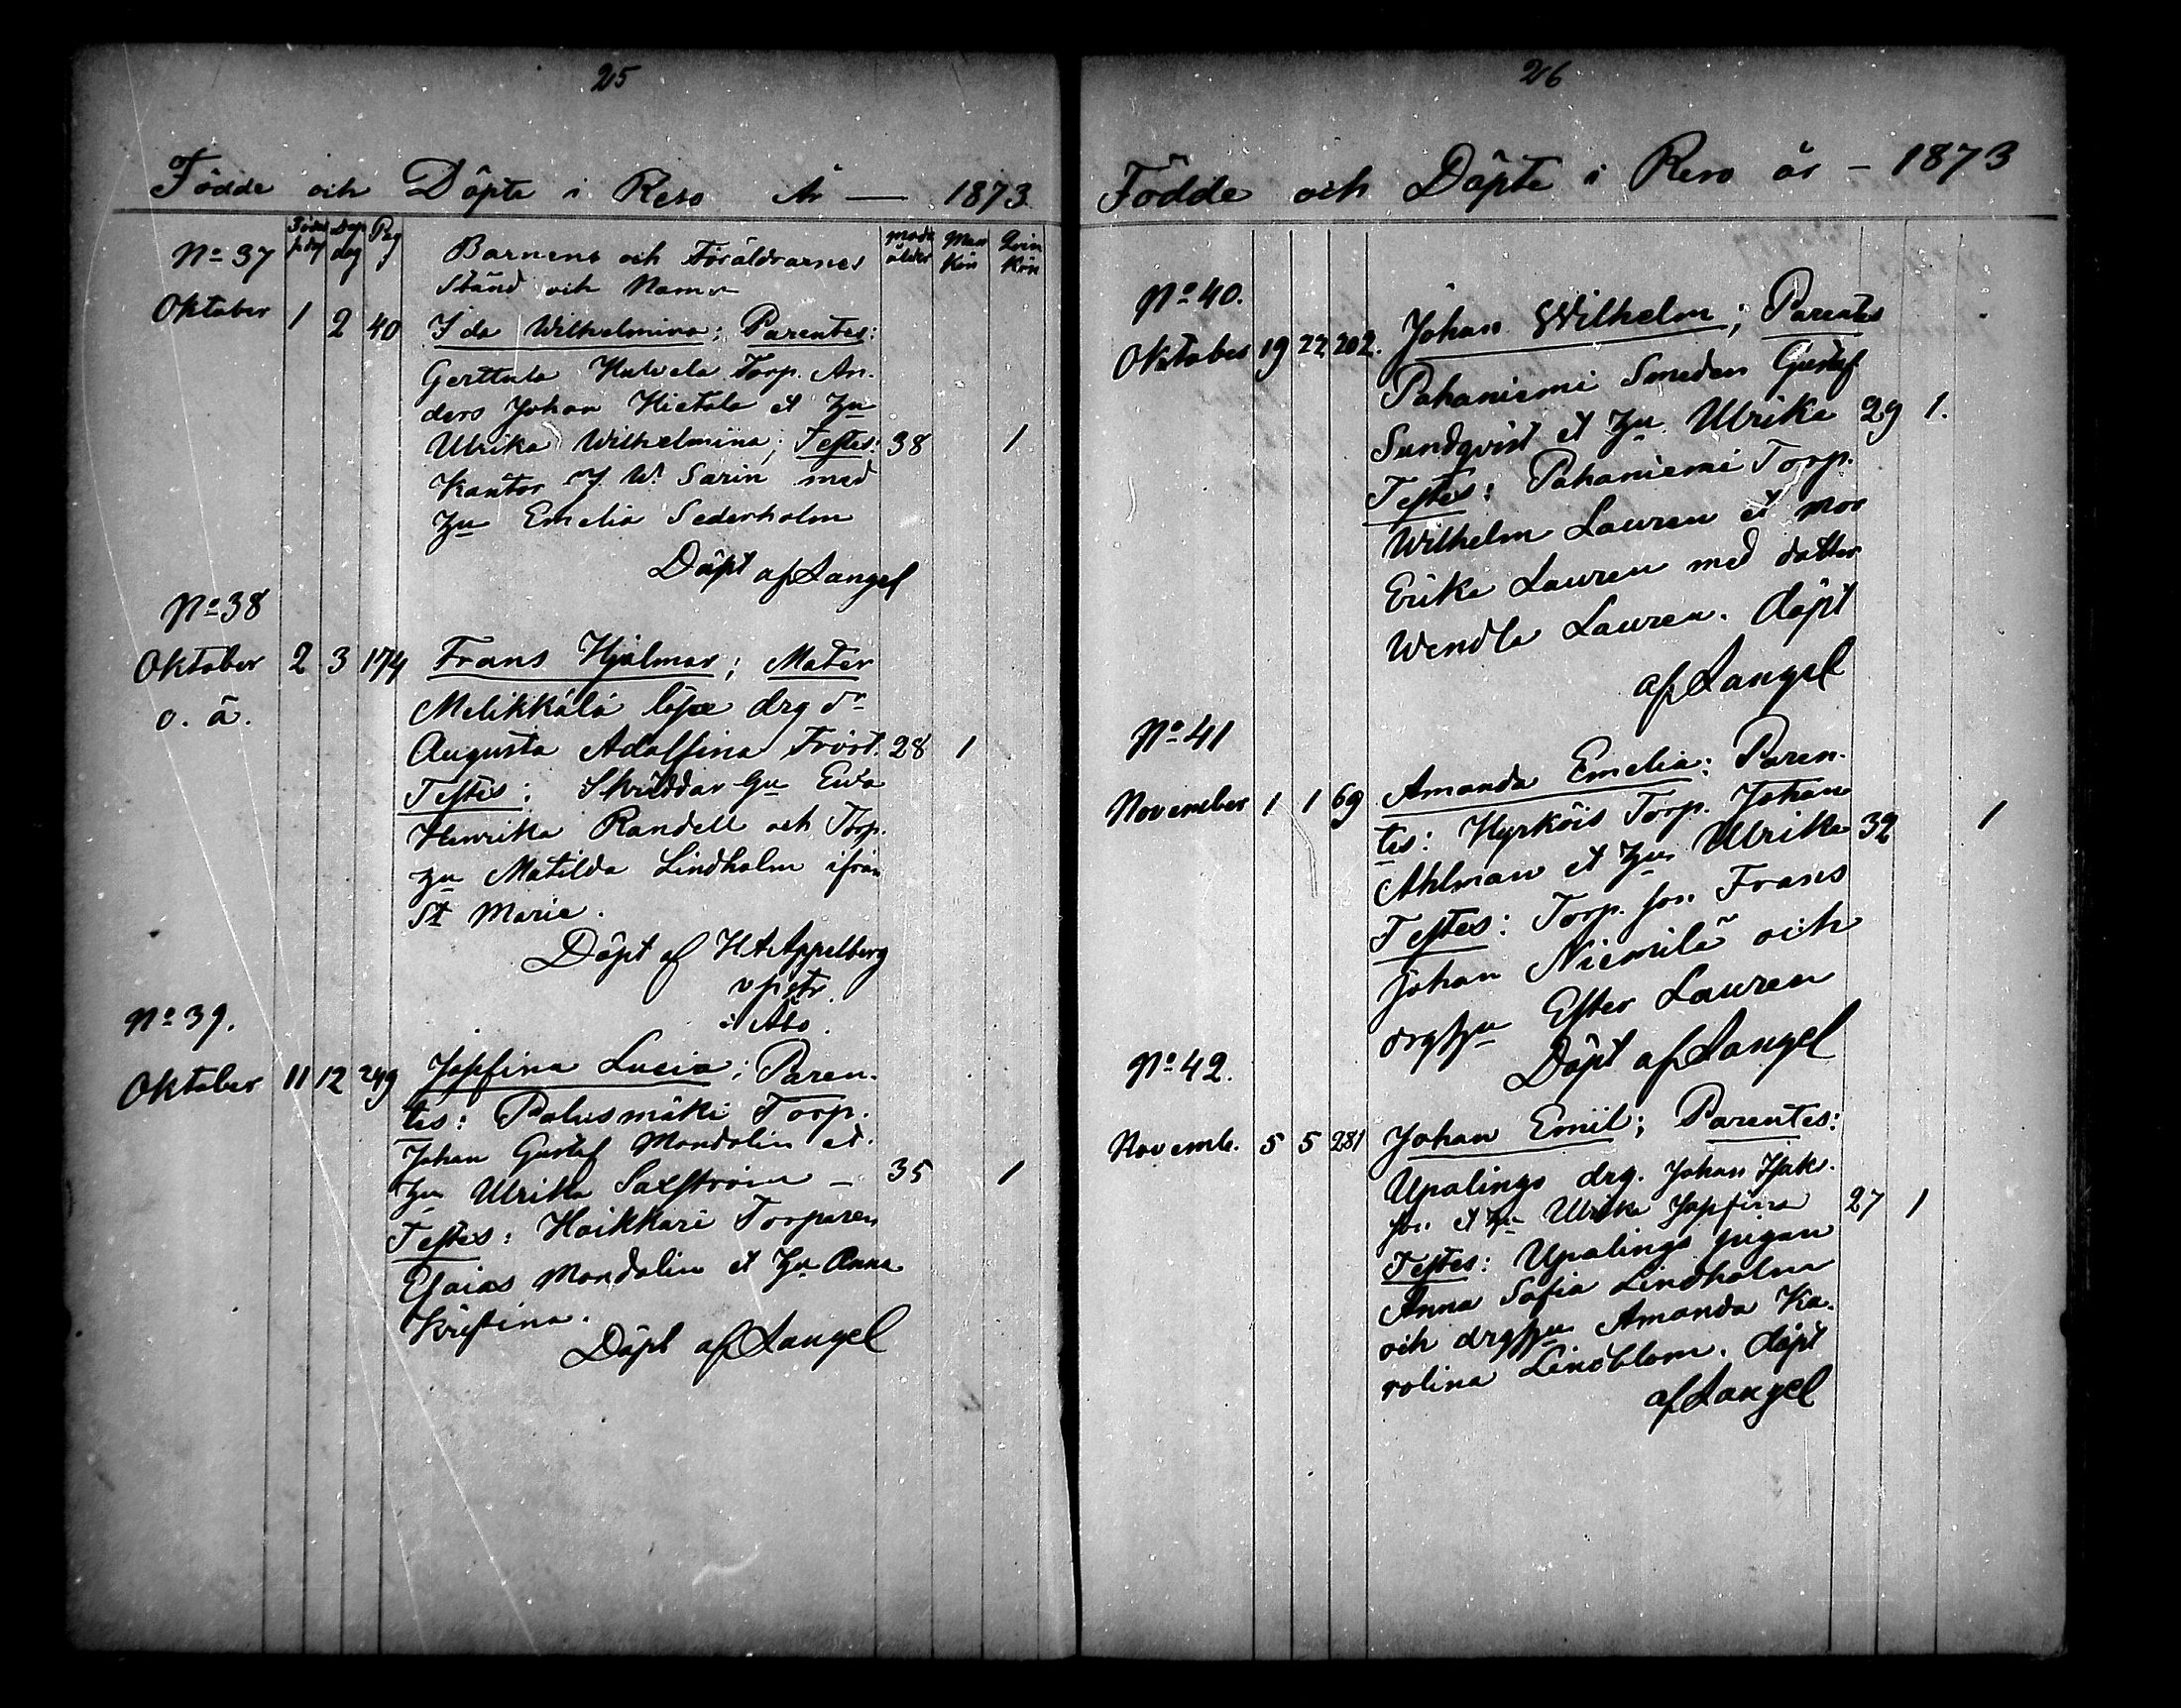 25
Födde och Döpte i Reso År — 1873
No 37
Döp dag
Pag
Barnens och Föräldrarnes
Stånd och Namn
Man Kön
Qvin Kön
Oktober 1 2 40 Ida Wilhelmina; Parentes:
Gerttula Torp. An-
ders Johan Hietala et hu
Ulrika Wilhelmina; Testes: 38 1
Kantor W. Sarin med
hu Emelia Sederholm
Döpt af Langel
No 38
Oktober 2 3 174 Frans Hjalmar; Mater
o. ä. Melikkälä lösa drg
Augusta Adolfina Fröst. 28 1
Testes: Skräddar hu Eva
Henrika Randell och Torp.
hu Matilda Lindholm ifrån
St Marie.
Döpt af H A Appelberg
v pstr.
i Åbo.
No 39.
Oktober 11 12 249 Josefina Lucia; Paren-
tes: Palusmäki Torp.
Johan Gustaf Mandalin et
hu Ulrika Saxström — 35 1
Testes: Haikkari Torparen
Esaias Mandalin et hu Anna
Kristina.
Döpt af Langel
26
Födde och Döpte i Reso år — 1873
No 40.
Oktober 19 22 202. Johan Wilhelm; Parentes
Pahaniemi Smeden Gustaf
Sundqvist et hu Ulrika 29 1.
Testes: Pahaniemi Torp.
Wilhelm Lauren et mor
Erika Lauren med dotter
Wendla Lauren. döpt
af Langel
No 41
November 1 1 69 Amanda Emelia; Paren-
tes: Hyrköis Torp. Johan
Ahlman et hu Ulrika 32 1
Testes: Torp. son Frans
Johan Niemilä och
drghu Ester Lauren
Döpt af Langel
No 42.
Novemb. 5 5 281 Johan Emil; Parentes:
Upalingo drg. Johan Isak-
son et hu Ulrika Josefina 27 1
Testes: Upalingo pigan
Anna Sofia Lindholm
och drghu Amanda Ka-
rolina Lindblom. döpt
af Langel